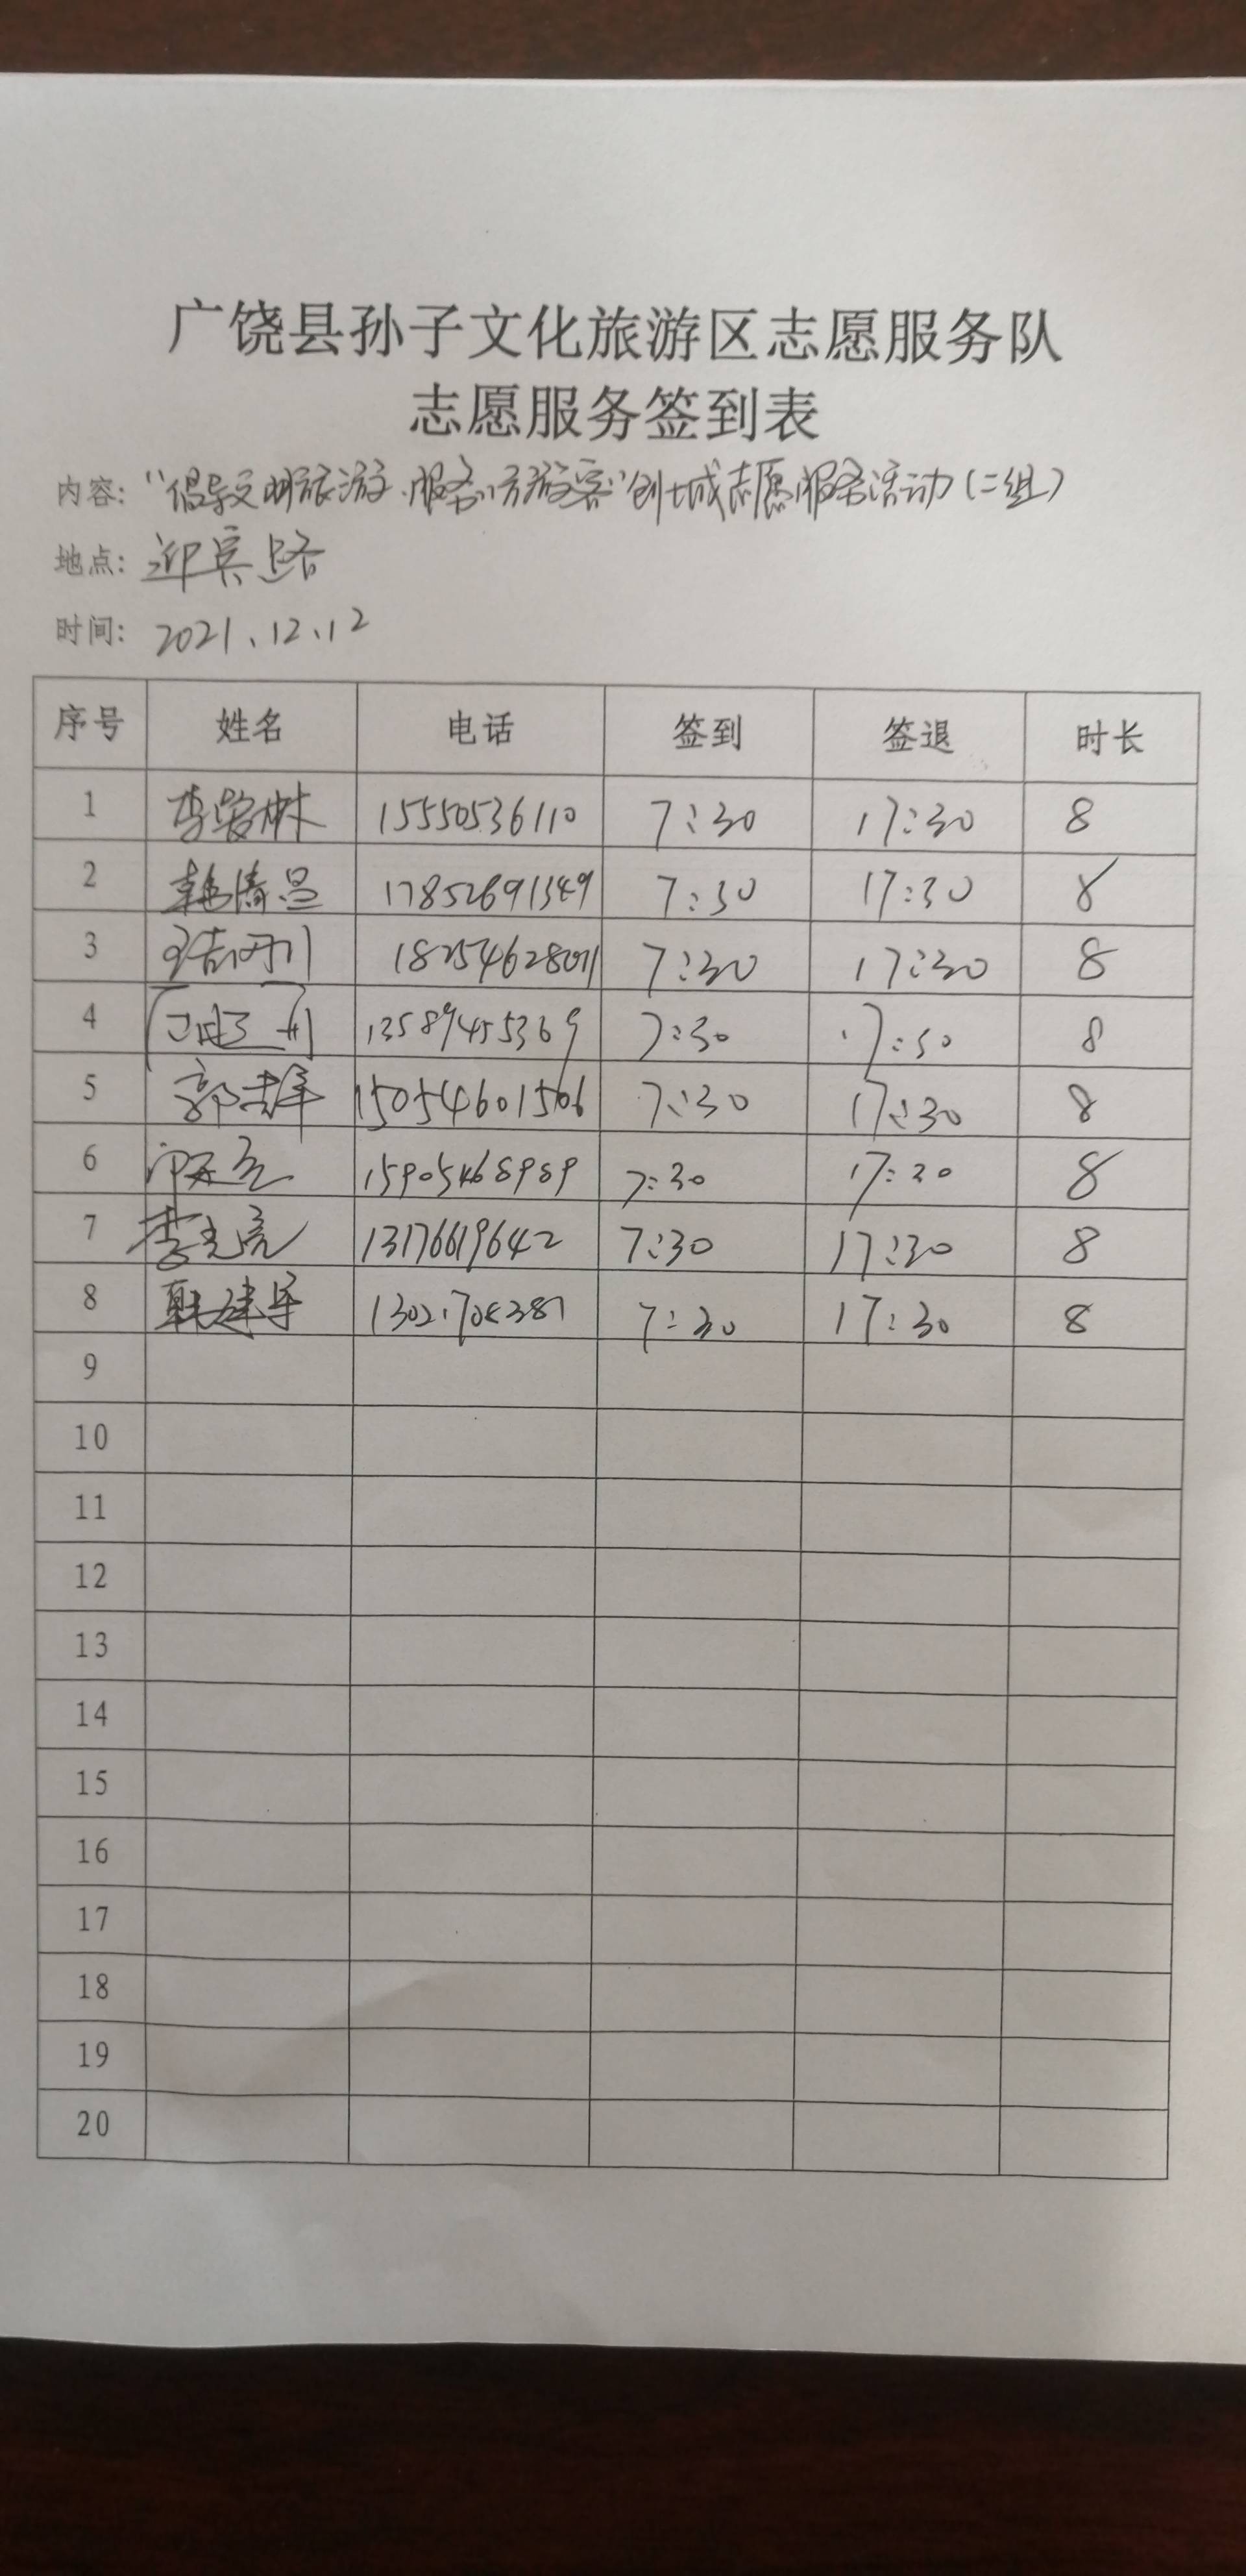 广饶县孙子文化旅游区志愿服务队
志愿服务签到表
内容:“倡导文明旅游、服务八方游客”创城志愿服务活动(二组)
地点:迎宾路
时间:2021、12、12
序号 姓名 电话 签到 签退 时长
1 15550536110 7:30 17:30 8
2 韩清昱 17852691349 7:30 17:30 8
3 18254628071 7:30 17:30 8
4 13589455369 7:30 17:30 8
5 郭吉峰 15054601506 7:30 17:30 8
6 15905468989 7:30 17:30 8
7 李光亮 13176619642 7:30 17:30 8
8 耿建军 7:30 17:30 8
9
10
11
12
13
14
15
16
17
18
19
20